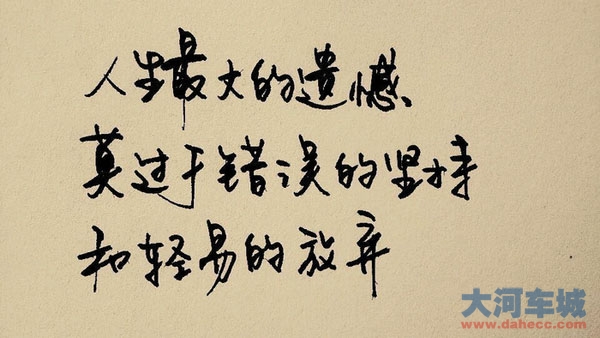 人生最大的遗憾
莫过于错误的坚持
和轻易的放弃
大河车城
www.dahecc.com